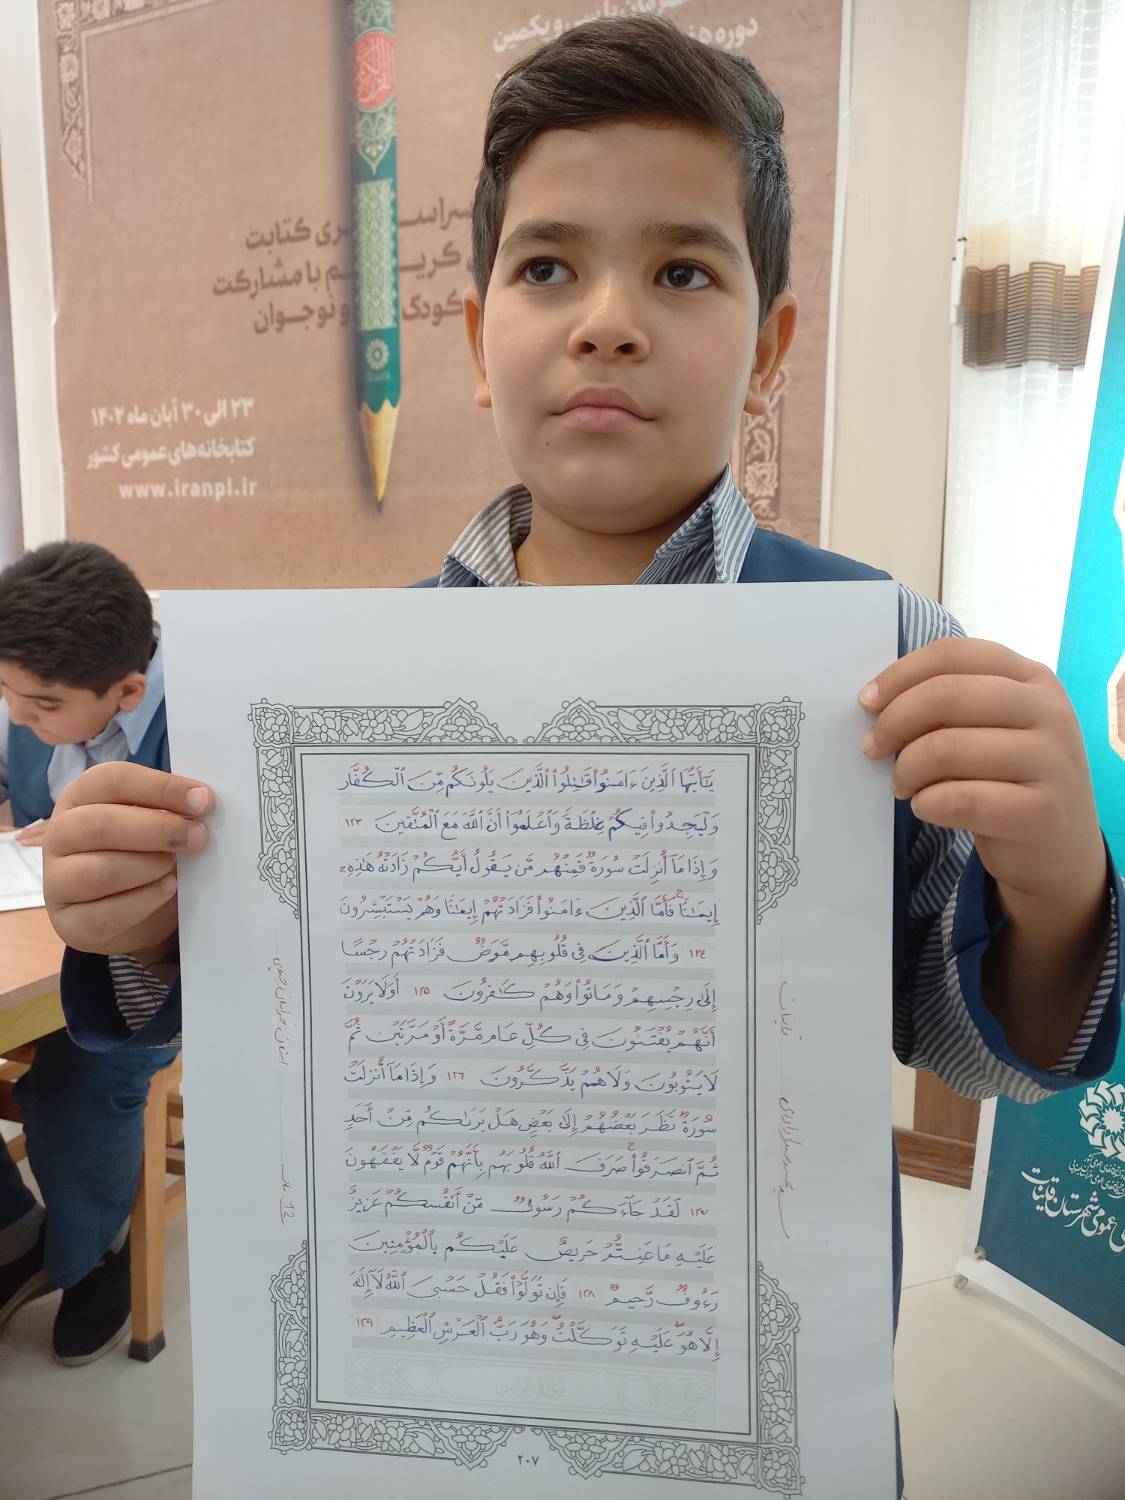 دوره هف
سی و یکمین
سراسری کتابت
کریم با مشارکت
کودک و نوجوان
۲۳ الی ۳۰ آبان ماه ۱۴۰۲
کتابخانه‌های عمومی کشور
www.iranpl.ir
يَٰٓأَيُّهَا ٱلَّذِينَ ءَامَنُوا۟ قَٰتِلُوا۟ ٱلَّذِينَ يَلُونَكُم مِّنَ ٱلْكُفَّارِ
وَلْيَجِدُوا۟ فِيكُمْ غِلْظَةً وَٱعْلَمُوٓا۟ أَنَّ ٱللَّهَ مَعَ ٱلْمُتَّقِينَ ١٢٣
وَإِذَا مَآ أُنزِلَتْ سُورَةٌ فَمِنْهُم مَّن يَقُولُ أَيُّكُمْ زَادَتْهُ هَٰذِهِۦٓ
إِيمَٰنًا ۚ فَأَمَّا ٱلَّذِينَ ءَامَنُوا۟ فَزَادَتْهُمْ إِيمَٰنًا وَهُمْ يَسْتَبْشِرُونَ
١٢٤ وَأَمَّا ٱلَّذِينَ فِى قُلُوبِهِم مَّرَضٌ فَزَادَتْهُمْ رِجْسًا
إِلَىٰ رِجْسِهِمْ وَمَاتُوا۟ وَهُمْ كَٰفِرُونَ ١٢٥ أَوَلَا يَرَوْنَ
أَنَّهُمْ يُفْتَنُونَ فِى كُلِّ عَامٍ مَّرَّةً أَوْ مَرَّتَيْنِ ثُمَّ
لَا يَتُوبُونَ وَلَا هُمْ يَذَّكَّرُونَ ١٢٦ وَإِذَا مَآ أُنزِلَتْ
سُورَةٌ نَّظَرَ بَعْضُهُمْ إِلَىٰ بَعْضٍ هَلْ يَرَىٰكُم مِّنْ أَحَدٍ
ثُمَّ ٱنصَرَفُوا۟ ۚ صَرَفَ ٱللَّهُ قُلُوبَهُم بِأَنَّهُمْ قَوْمٌ لَّا يَفْقَهُونَ
١٢٧ لَقَدْ جَآءَكُمْ رَسُولٌ مِّنْ أَنفُسِكُمْ عَزِيزٌ
عَلَيْهِ مَا عَنِتُّمْ حَرِيصٌ عَلَيْكُم بِٱلْمُؤْمِنِينَ
رَءُوفٌ رَّحِيمٌ ١٢٨ فَإِن تَوَلَّوْا۟ فَقُلْ حَسْبِىَ ٱللَّهُ لَآ إِلَٰهَ
إِلَّا هُوَ عَلَيْهِ تَوَكَّلْتُ وَهُوَ رَبُّ ٱلْعَرْشِ ٱلْعَظِيمِ ١٢٩
۲۰۷
استان خراسان جنوبی
12 ساله
قاینات
عمومی شهرستان قاینات